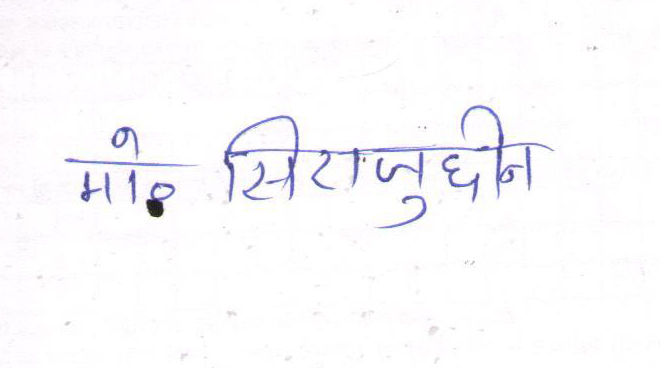 मो० सिराजुद्दीन